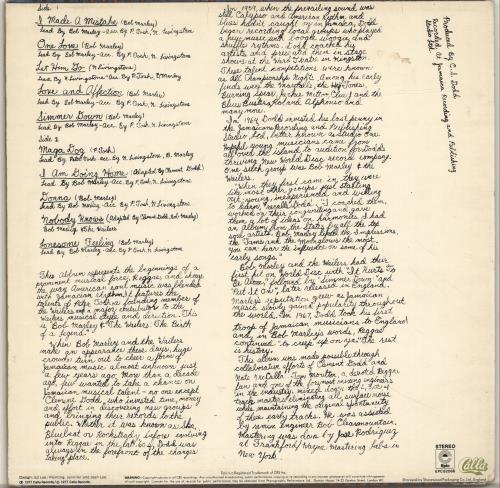 Side 1
I Made A Mistake (Bob Marley)
Lead By Bob Marley - Acc By P. Tosh, N. Livingstone
One Love (Bob Marley)
Lead By Bob Marley - Acc. By P. Tosh, N. Livingstone
Let Him Go (N. Livingstone)
Lead By N. Livingstone - Acc By P. Tosh, B. Marley
Love and Affection (Bob Marley)
Lead By Bob Marley - Acc. By P. Tosh, N. Livingstone
Simmer Down (Bob Marley)
Lead By Bob Marley - Acc. By P. Tosh, N. Livingstone
Side 2
Maga Dog (P. Tosh)
Lead By Peter Tosh - Acc. By N. Livingstone, B. Marley
I Am Going Home (Adapted By Clement Dodd)
Lead By Bob Marley - Acc By P. Tosh, N. Livingstone
Donna (Bob Marley)
Lead By Bob Marley - Acc By P. Tosh, N. Livingstone
Nobody Knows (Adapted By Clement Dodd, Bob Marley)
Bob Marley & The Wailers
Lonesome Feeling (Bob Marley)
Lead By Bob Marley - Acc. By P. Tosh, N. Livingstone
This Album represents the beginnings of a
prominent musical force, Reggae, and shows
the way American soul music was blended
with Jamaican rhythms. It features the
talents of Peter Tosh, a founding member of
the Wailers and a major contributor to the
Wailers musical style and direction. This
is Bob Marley & The Wailers: The Birth
of a legend.
When Bob Marley and the Wailers
make an appearance these days, huge
crowds turn out to cheer a form of
Jamaican music almost unknown just
a few years ago. More than a decade
ago, few wanted to take a chance on
Jamaican musical talent - no one except
Clement Dodd, who invested time, money
and effort in discovering new groups
and bringing their records to the
public. Whether it was known as Ska,
Bluebeat or Rocksteady before evolving
into Reggae in the late 60's, Dodd was
always in the forefront of the changes
taking place.
In 1954, when the prevailing sound was
still Calypso and American rhythm and
blues hadn't caught on in Jamaica, Dodd
began recording local groups who played
music with boogie woogie and
shuffle rhythms. Dodd coached his
artists and presented them in stage
shows at the Ward Theatre in Kingston.
These talent competitions were known
as All Championship Nights. Among his early
finds were the Maytalls, the Hep Tones,
Burning Spear, Jackie Mittoo, and the
Blues Busters, Roland Alphonso and
many more.
In 1964, Dodd invested his last penny in
the Jamaica Recording and Publishing
Studio, Ltd., better known as Studio One.
Hopeful young musicians came from
all over the island to audition for Dodd's
thriving New World Disc record company.
One such group was Bob Marley & the
Wailers.
"When they first came in, they were
like most other groups just starting
out - young, inexperienced, and willing
to learn," recalls Dodd. "I coached them,
worked on their songwriting and gave
them a lot of ideas on harmonies. I had
an album from the States by all the top
soul artists. Bob Marley liked the Impressions,
the Tams and the Moonglows the most.
You can hear the influence on some of his
early songs."
Bob Marley and the Wailers had their
first hit on World Disc with "It Hurts To
Be Alone," followed by "Simmer Down" and
"Put It On," later released in England.
Marley's reputation grew as Jamaican
music slowly gained popularity throughout
the world. In 1967, Dodd took his first
troop of Jamaican musicians to England
and, in Bob Marley's words, Reggae
continued "to creep up on ya." The rest
is history.
The album was made possible through
collaborative efforts of Clement Dodd and
Nate McCalla. Tom Moulton, a devoted Reggae
fan and one of the foremost mixing engineers
in the industry,
masters eliminating all surface noise
while maintaining the original spontaneity
of these early tracks. He was assisted
by remix Engineer Bob Clearmountain.
Mastering was done by José Rodriguez
at Frankford/Wayne Mastering Labs in
New York.
Produced by C.S. Dodd
Recorded at Jamaica Recording and Publishing
Studio Ltd.
STEREO
Epic
Calla